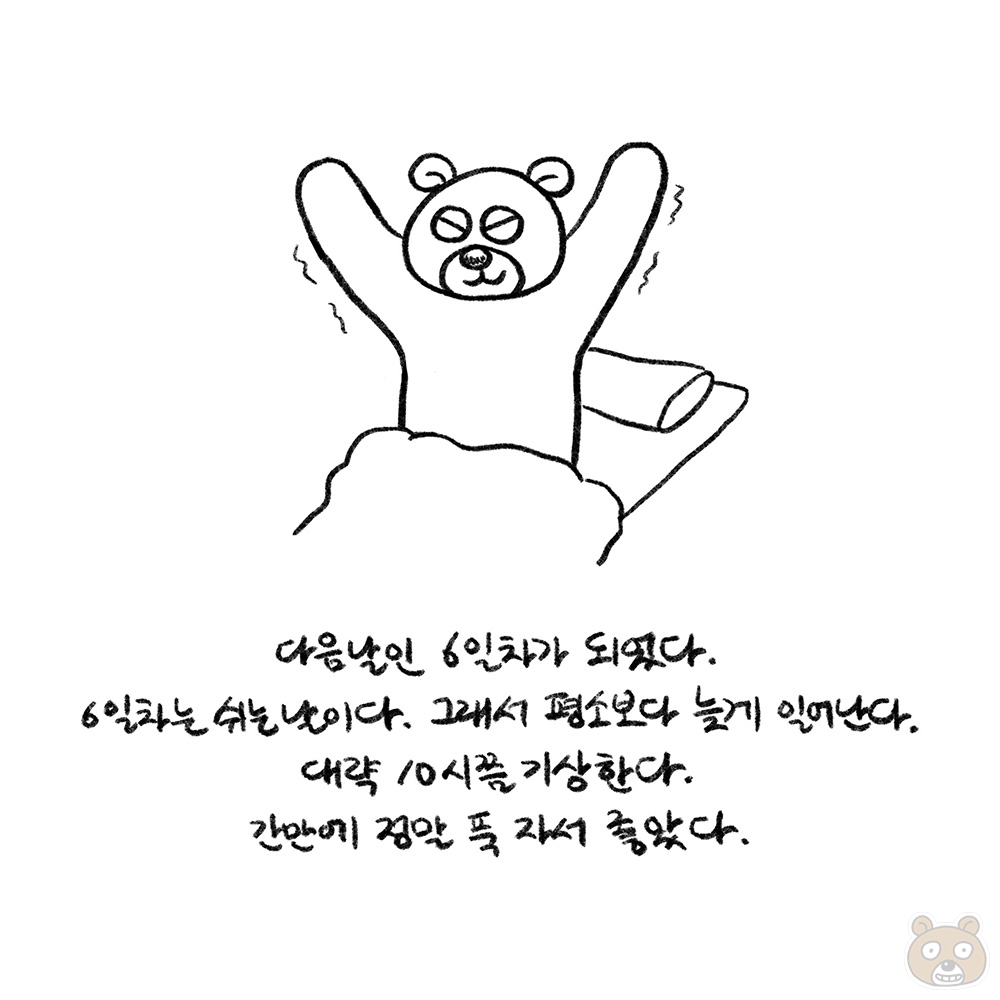 다음날인 6일차가 되었다.
6일차는 쉬는날이다. 그래서 평소보다 늦게 일어난다.
대략 10시쯤 기상한다.
간만에 정말 푹 자서 좋았다.